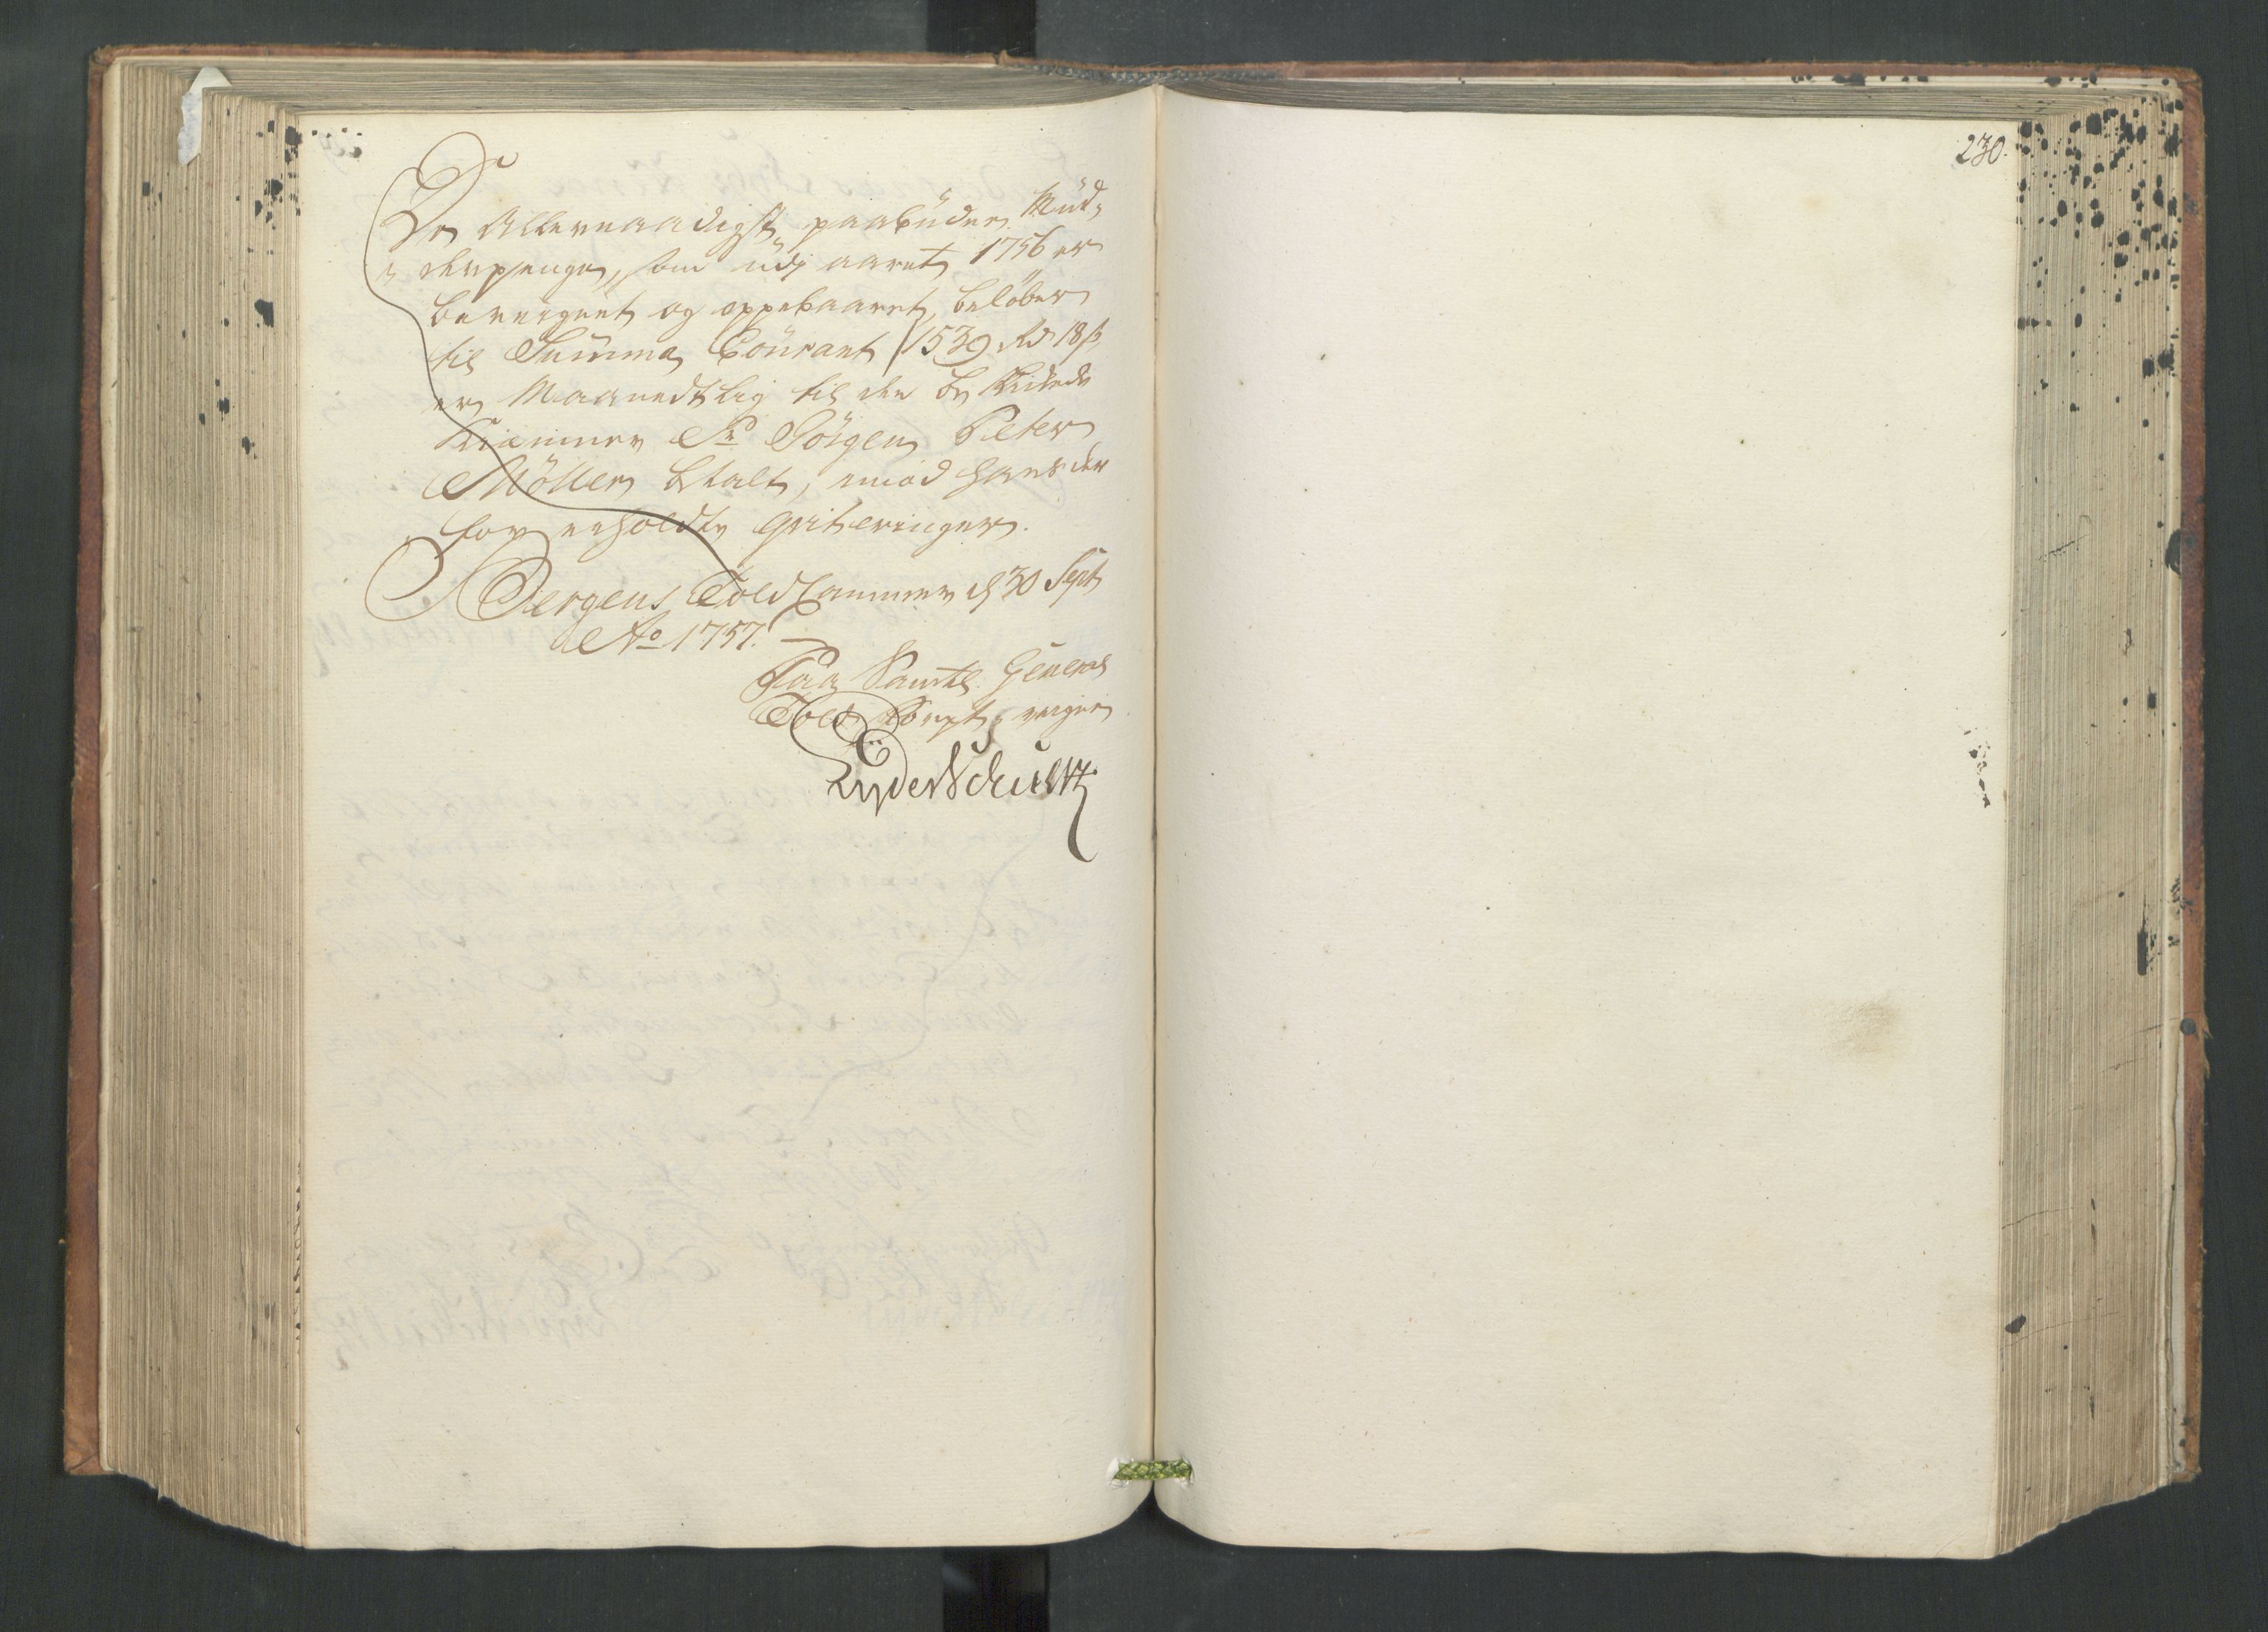 De Allernaadigst paabudne Mud-
derpenge, som udj aaret 1756 er
bereignet og oppebaaret, beløber
til Summa Courant 1539 Rd 18 ß
er Maanedtlig til den
Kiæmner Sr Jörgen Peter
Möller betalt, imod hans der
for erholdte qviteringer.
Bergens Told Cammer d 30 Sept
Ao 1757.
Paa Samtl. General
Told Forpt: veigne
Lyder Schultz
230.